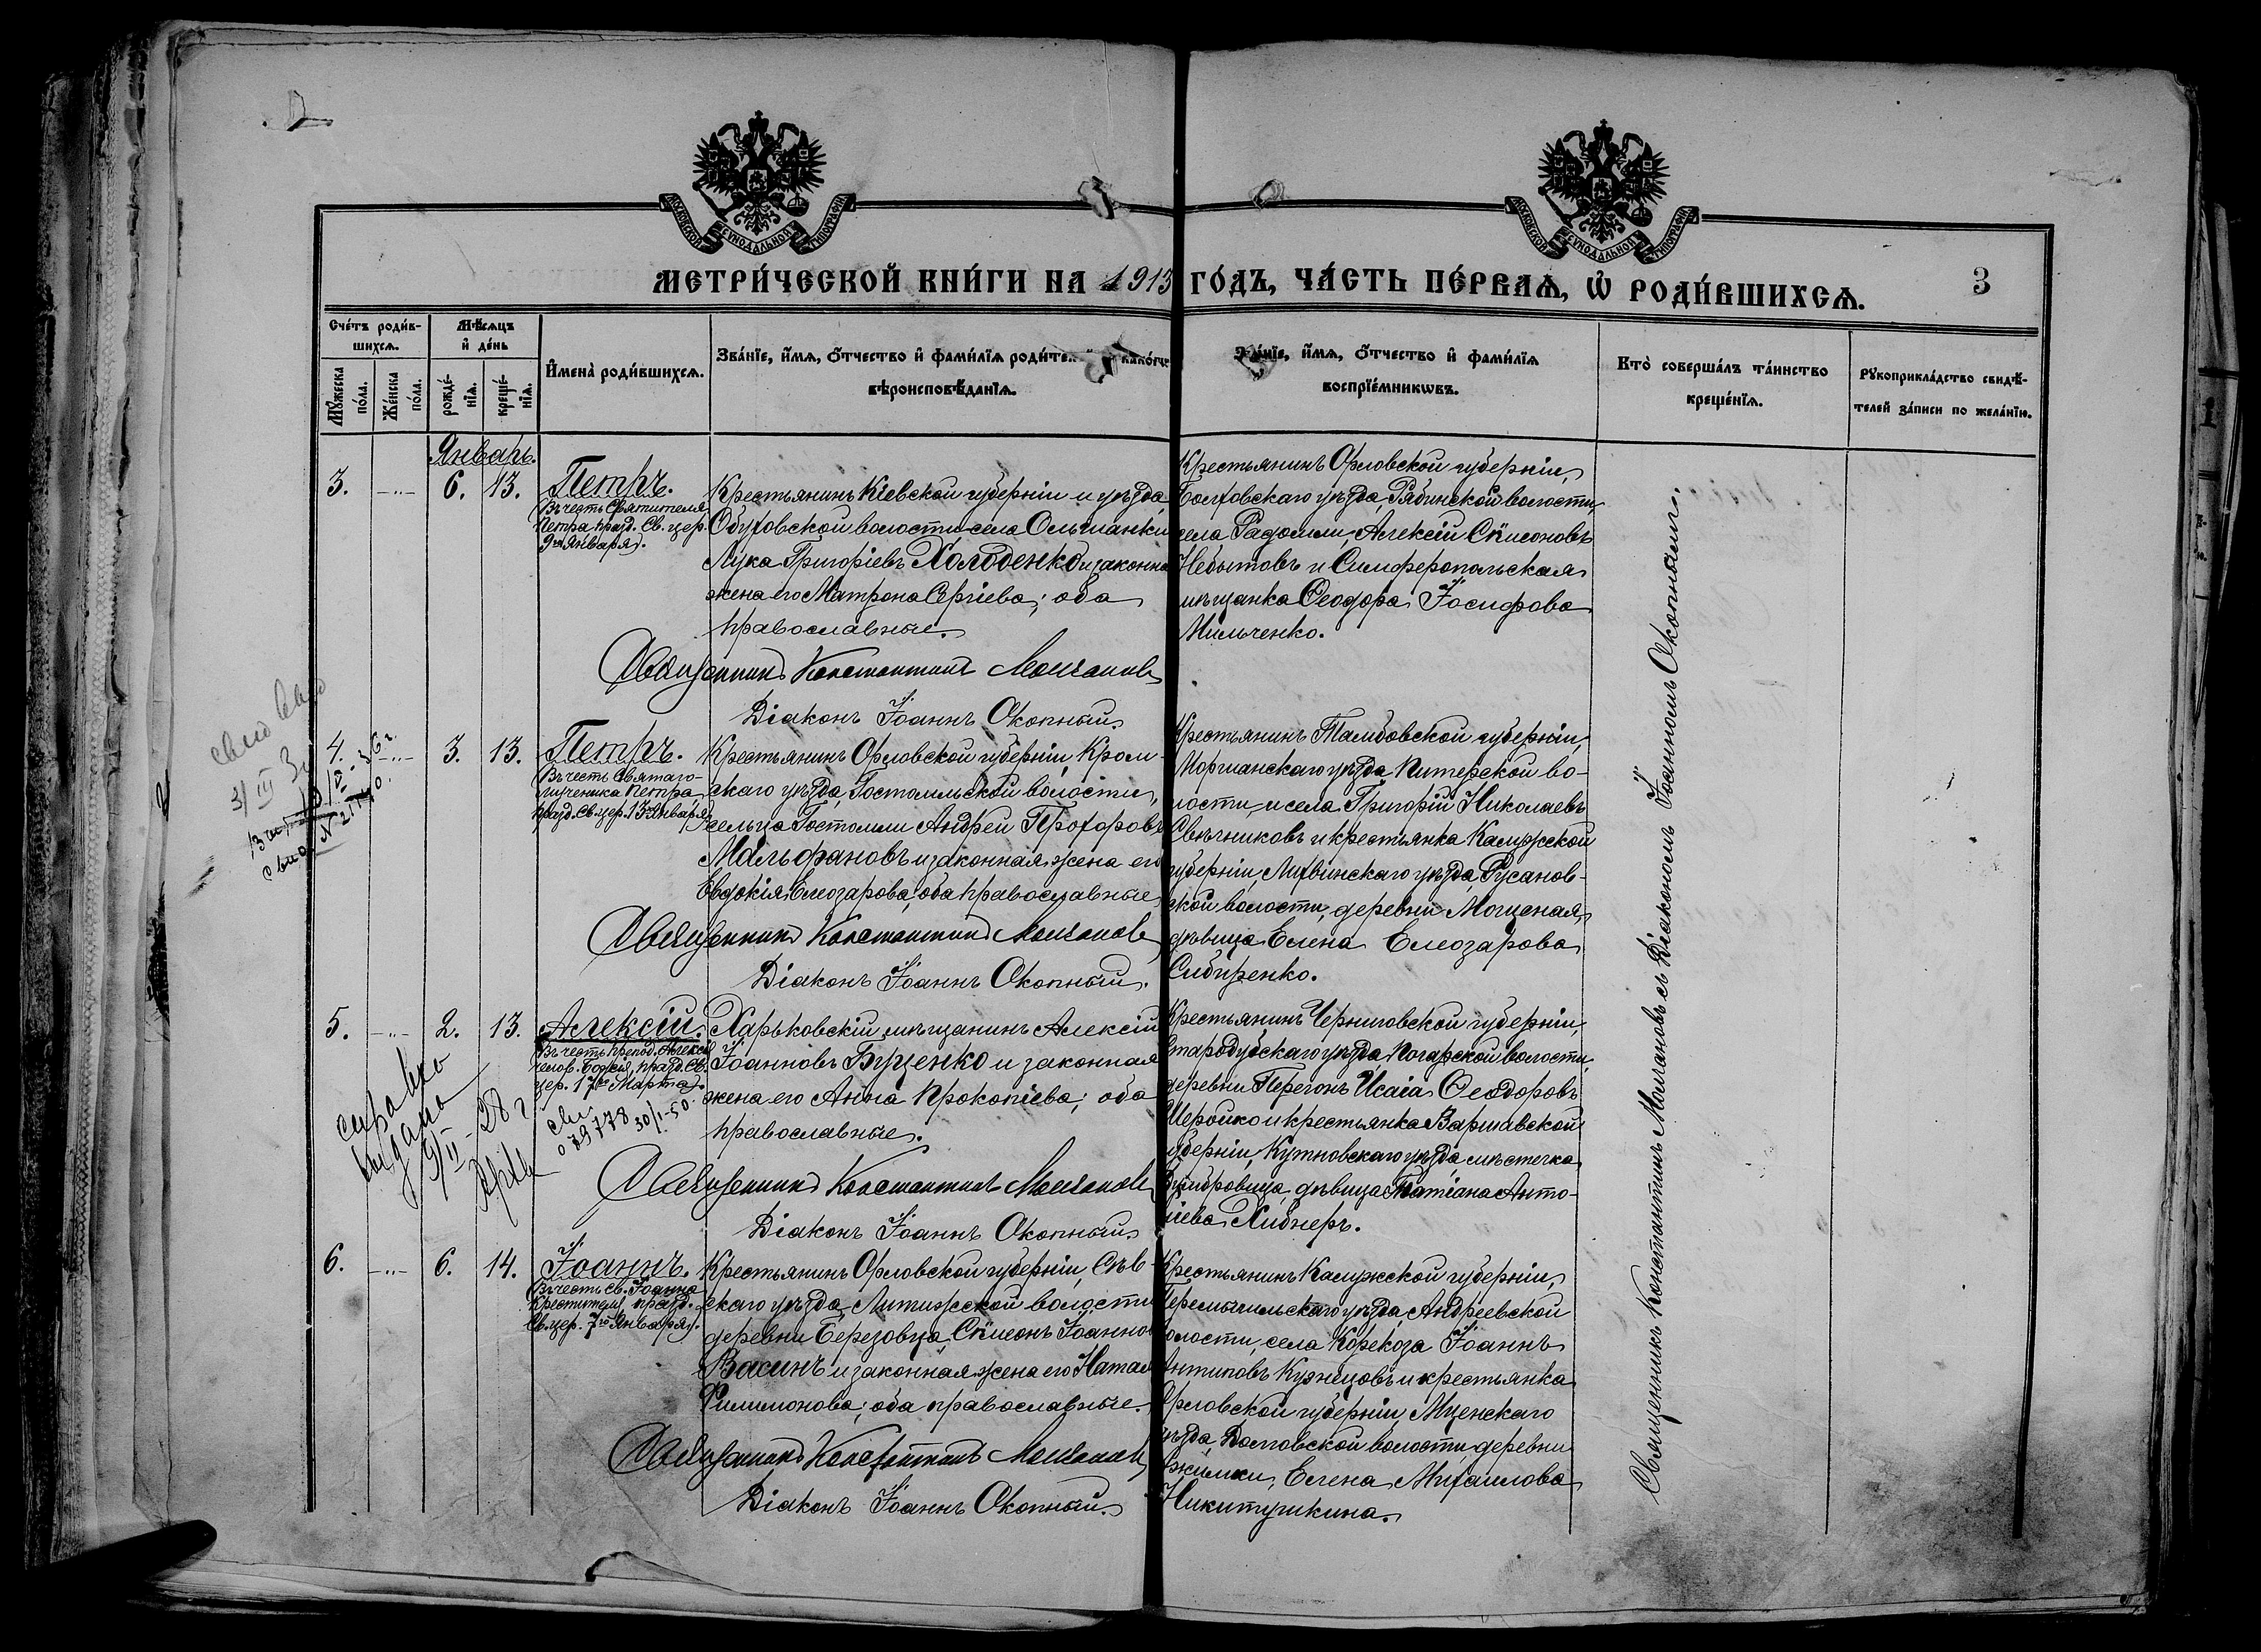 МОСКОВСКОЙ СѴНОДАЛЬНОЙ ТИПОГРАФІИ
МОСКОВСКОЙ СѴНОДАЛЬНОЙ ТИПОГРАФІИ
МЕТРИ́ЧЕСКОЙ КНИ́ГИ НА 1913 ГО́ДЪ, ЧА́СТЬ ПЕ́РВАѦ, Ѽ РОДИ́ВШИХСѦ.
3
Сче́тъ роди́в-
шихсѧ.
Мꙋ́жеска
по́ла.
Же́нска
по́ла.
Мѣ́сѧцъ
и҆ де́нь
рожде́-
нїѧ.
креще́-
нїѧ.
И҆мена̀ роди́вшихсѧ.
Зва́нїе, и҆́мѧ, ѻ҆́тчество и҆ фами́лїѧ роди́те како́гѡ
вѣроисповѣ́данїѧ.
Зва́нїе, и҆́мѧ, ѻ҆́тчество и҆ фами́лїѧ
воспрїе́мникѡвъ.
Кто̀ соверша́лъ та́инство
креще́нїѧ.
Рꙋкоприкла́дство свидѣ́-
телей за́писи по жела́нїю.
Январь.
3. -"- 6. 13. Петръ.
Въ честь Святителя
Петра, празд. Св. цер.
9го Января).
Крестьянинъ Кіевской губерніи и уѣзда,
Обуховской волости, села Ольшанки
Лука Григоріевъ Холоденко и законна
жена его Матрона Сергіева; оба
православные.
Священникъ Константинъ Молчановъ
Діаконъ Іоаннъ Окопный.
Крестьянинъ Орловской губерніи,
Болховскаго уѣзда, Рябинской волости,
села Радомли, Алексій Сѵмеоновъ
Небытовъ и Симферопольская
мѣщанка Ѳеодора Іосифова
Мильченко.
4. -"- 3. 13. Петръ.
Въ честь Святаго
мученика Петра
празд. Св. цер. 13 Января)
Крестьянинъ Орловской губерніи, Кром-
скаго уѣзда, Гостомльской волости,
сельца Гостомли Андрей Прохоровъ
Мальфановъ и законная жена его
Евдокія Елеозарова, оба православные
Священникъ Константинъ Молчановъ
Діаконъ Іоаннъ Окопный.
Крестьянинъ Тамбовской губерніи,
Моршанскаго уѣзда, Питерской во-
лости, и села Григорій Николаевъ
Свѣчниковъ и крестьянка Калужской
губерніи, Лихвинскаго уѣзда, Русанов-
ской волости, деревни Мощеная,
дѣвица Елена Елеозарова
Сидиренко.
5. -"- 2. 13. Алексій.
Въ честь препод. Алексія
челов. Божія, празд. Св.
цер. 17го Марта).
Харьковскій мѣщанинъ Алексій
Іоанновъ Буценко и законная
жена его Анна Прокопіева; оба
православные.
Священникъ Константинъ Молчановъ
Діаконъ Іоаннъ Окопный.
Крестьянинъ Черниговской губерніи,
Стародубскаго уѣзда, Погарской волости,
деревни Перегонъ Исаія Ѳеодоровъ
Шеройко и крестьянка Варшавской
губерніи, Кутновскаго уѣзда, мѣстечка
дѣвица Татіана Анто-
ніева Хибнеръ.
справка
выдана
9/II-28 г
079778 30/I-50.
6. -"- 6. 14. Іоаннъ.
Въ честь св. Іоанна
Крестителя, празд.
Св. цер. 7го Января).
Крестьянинъ Орловской губерніи, Сѣв-
скаго уѣзда, Литижской волости
деревни Березовца, Сѵмеонъ Іоанно
Васинъ и законная жена его Натал
Филимонова; оба православные.
Священникъ Константинъ Молчановъ
Діаконъ Іоаннъ Окопный.
Крестьянинъ Калужской губерніи,
Перемышльскаго уѣзда, Андреевской
волости, села Корекоза Іоаннъ
Антиповъ Кузнецовъ и крестьянка
Орловской губерніи, Мценскаго
уѣзда, волости, деревни
Елена Михаилова
Никитушкина.
Священникъ Константинъ Молчановъ съ Діакономъ Іоанномъ Окопнымъ.